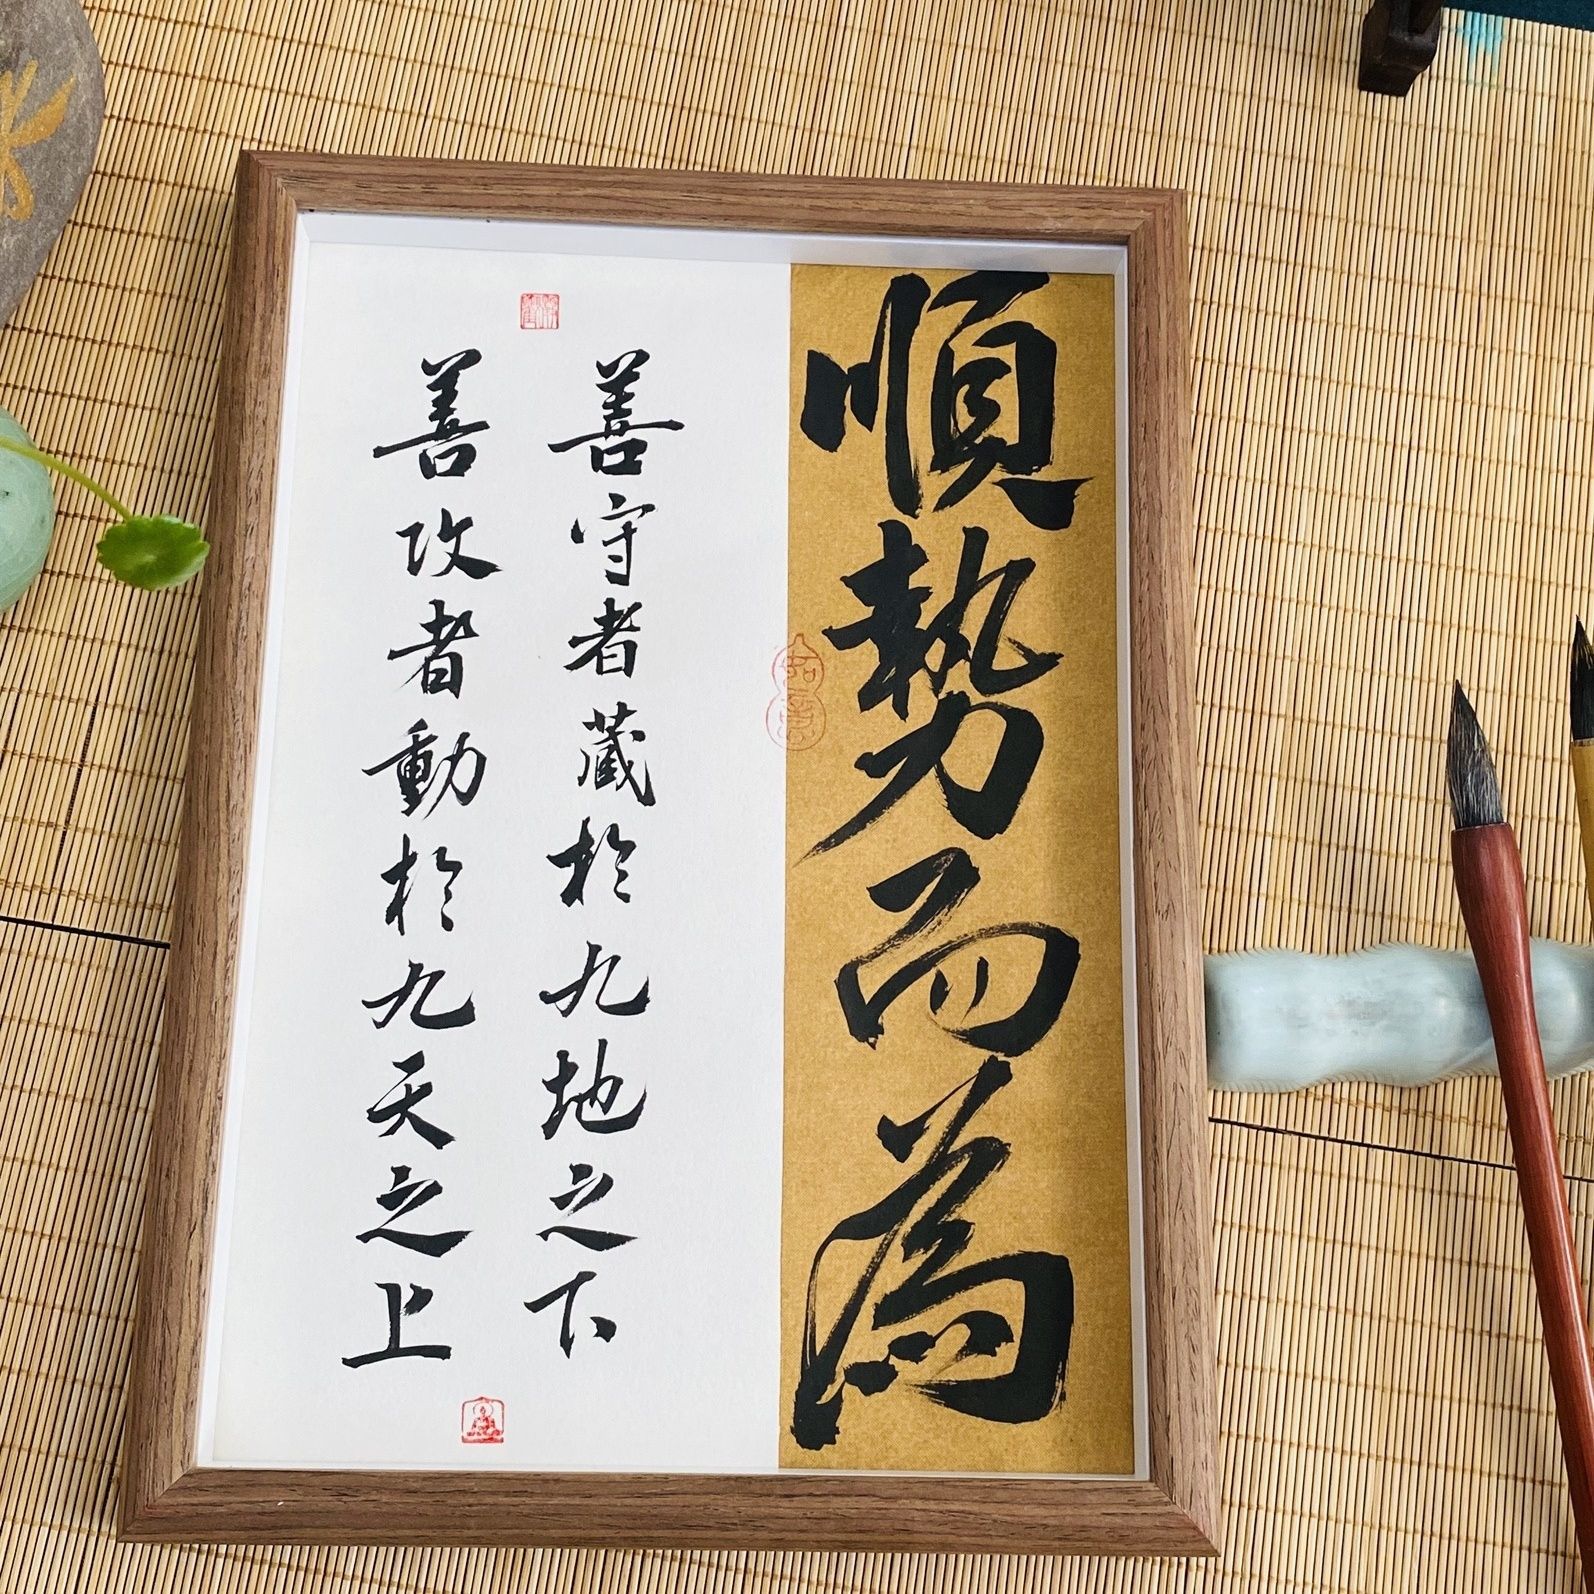 順勢而為
善守者藏於九地之下
善攻者動於九天之上